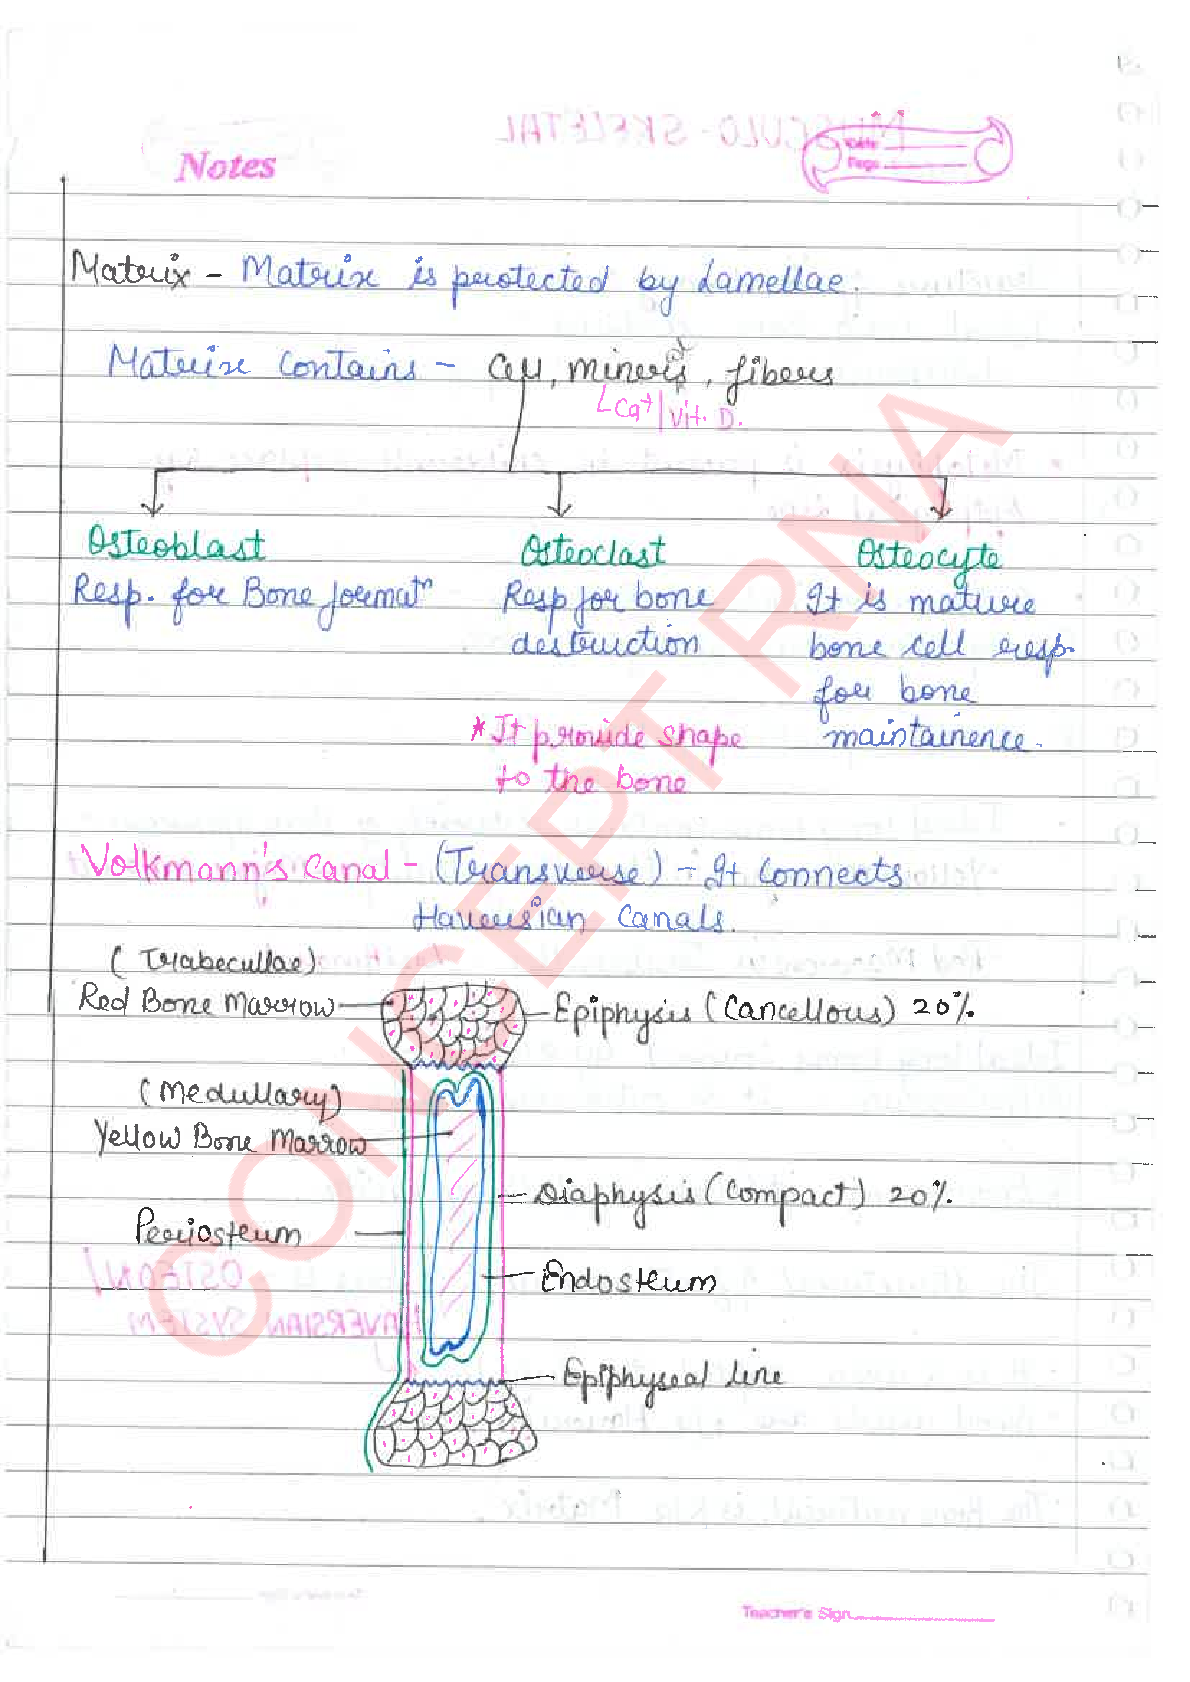 Notes
Date
Page
Matrix - Matrix is protected by Lamellae.
Matrix Contains - Cell, minerals, fibers
Ca+ | Vit. D.
Osteoblast Osteoclast Osteocyte
Resp. for Bone formatn Resp for bone It is mature
destruction bone cell resp.
for bone
*It provide shape maintainence.
to the bone
Volkmann's Canal - (Transverse) - It Connects
Haversian Canals.
(Trabecullae)
Red Bone Marrow Epiphysis (Cancellous) 20%
(Medullary)
Yellow Bone Marrow
Diaphysis (Compact) 20%.
Periosteum
Endosteum
Epiphyseal line
Teacher's Sign
CONCEPT RNA